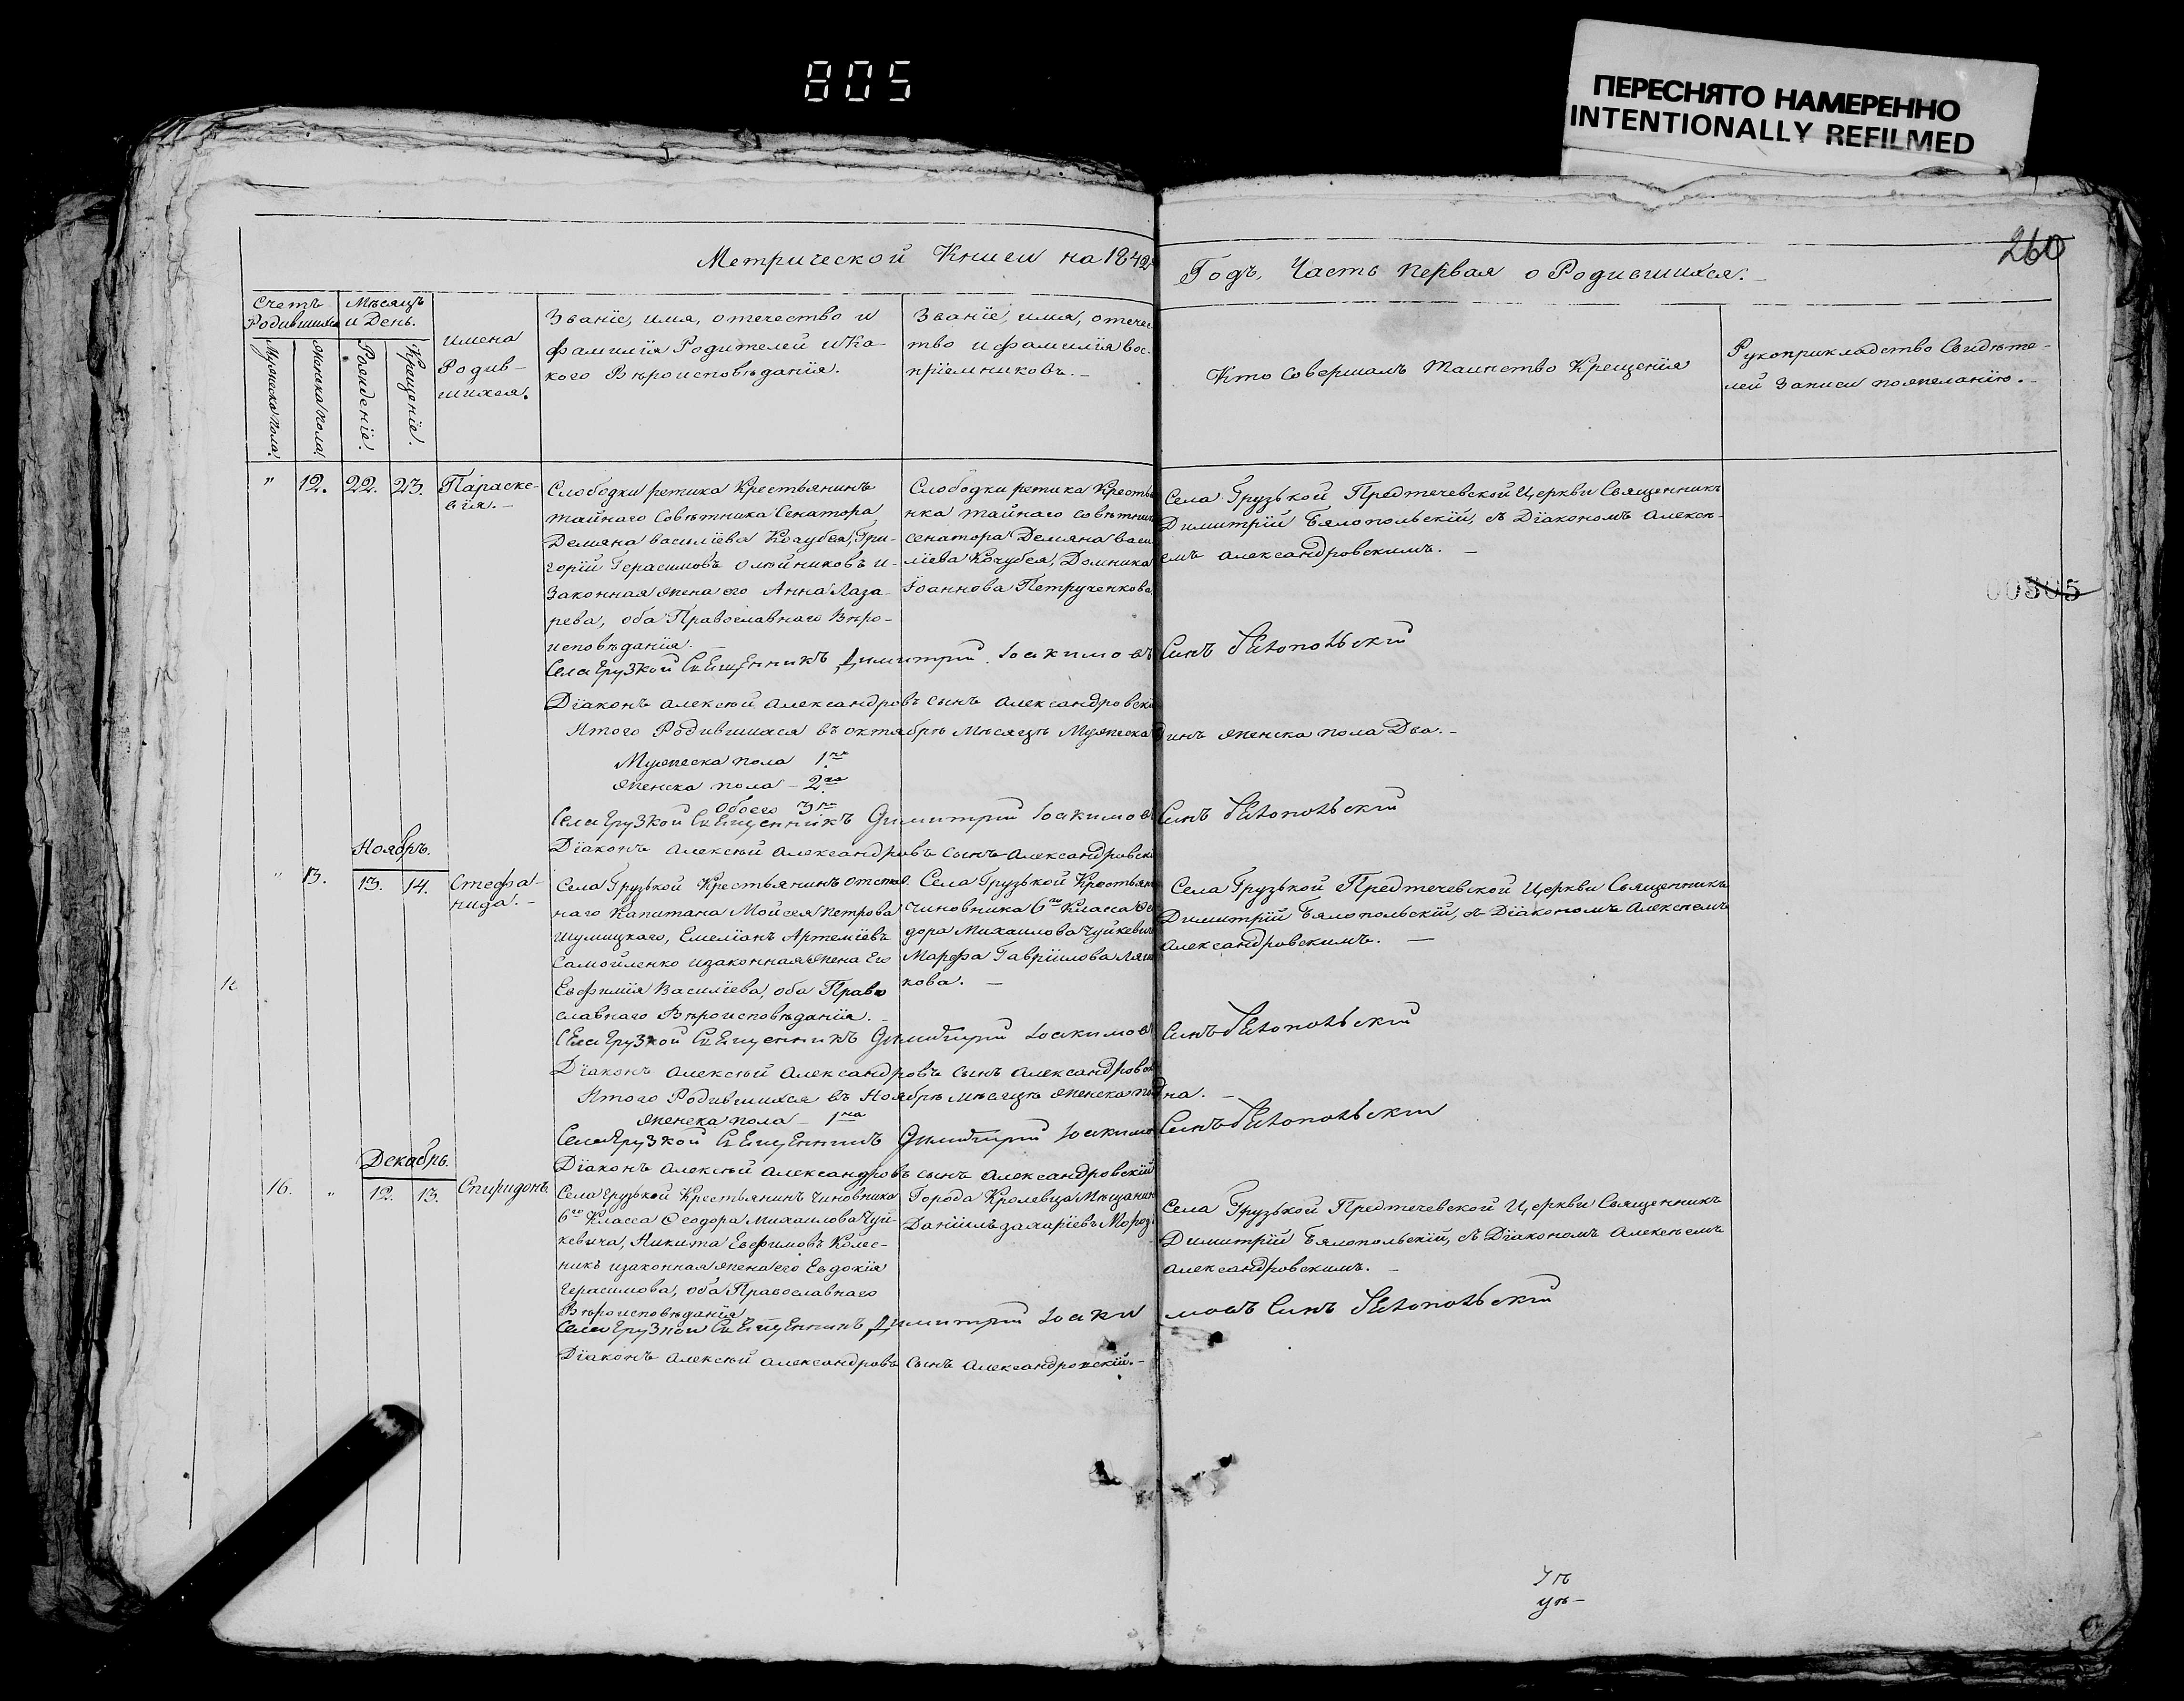 805
ПЕРЕСНЯТО НАМЕРЕННО
INTENTIONALLY REFILMED
260
Метрической Книги на 1842
Годъ, Часть первая о Родившихся.
Счетъ Родившихся
Мужеска пола.
Женска пола.
Мѣсяцъ и День.
Рожденіе.
Крещеніе.
Имена Родив-
шихся.
Званіе, имя, отечество и
фамилія Родителей и Ка-
кого Вѣроисповѣданія.
Званіе, имя, отечес
тво и фамилія вос-
пріемниковъ.
Кто Совершалъ Таинство Крещенія
Рукоприкладство Свидѣте-
лей Записи пожеланію.
" 12. 22. 23. Параске-
вія.
Слободки ретика Крестьянинъ
тайнаго Совѣтника Сенатора
Демяна василіева Кочубея, Гри-
горій Герасимовъ Олѣйниковъ и
Законная жена его Анна Лаза-
рева, оба Православнаго Вѣро-
исповѣданія.
Слободки ретика Кресть
нка тайнаго совѣтник
сенатора Демяна васи
ліева Кочубея, Домника
Іоаннова Петрученкова
Села Грузькой Предтечевской Церкви Священникъ
Димитрій Бялопольскій, съ Діакономъ Алексѣ-
емъ Александровскимъ.
00805
Села Грузкой Священникъ Димитрий Іоакимовъ Синъ Бялопольский
Діаконъ Алексѣй Александровъ сынъ Александровскі
Итого Родившихся въ октябрѣ Мѣсяцѣ Мужеска динъ женска пола Два.
Мужеска пола 1нъ
женска пола - 2ва
Обоего 3
Села Грузкой Священникъ Димитрий Іоакимов Синъ Бялопольский
Діаконъ Алексѣй Александровъ сынъ Александровскі
Ноябрь.
" 13. 13. 14. Стефа-
нида.
Села Грузькой Крестьянинъ отстав-
наго Капитана Мойсея Петрова
Шумицкаго, Емеліанъ Артеміевъ
Самойленко изаконная жена Его
Евфимія Василіева, оба Право
славнаго Вѣроисповѣданія.
Села Грузькой Крестьян
Чиновника 6го Класа Фе
дора Михаилова Чуйкевич
Марфа Гавріилова
кова.
Села Грузькой Предтечевской Церкви Священникъ
Димитрій Бялопольскій, съ Діакономъ Алексѣемъ
Александровскимъ.
Села Грузкой Священникъ Димитрий Іоакимов Синъ Бялопольский
Діаконъ Алексѣй Александровъ сынъ Александровск
Итого Родившихся въ Ноябрѣ мѣсяцѣ женска по дна.
женска пола - 1на
Села Грузкой Священникъ Димитрий Іоакимо Синъ Бялопольский
Діаконъ Алексѣй Александровъ сынъ Александровскій
Декабрь.
16. " 12. 13. Спиридонъ.
Села Грузькой Крестьянинъ Чиновника
6го Класса Феодора Михаилова Чуй-
кевича, Никита Евфимовъ Колес-
никъ изаконная жена его Евдокія
Герасимова, оба Православнаго
Вѣроисповѣданія
Города Кролевца Мѣщанин
Даніилъ захаріевъ Мороз
Села Грузькой Предтечевской Церкви Священникъ
Димитрій Бялопольскій, съ Діакономъ Алексѣемъ
Александровскимъ.
Села Грузкой Священникъ Димитрий Іоаки мовъ Синъ Бялопольский
Діаконъ Алексѣй Александровъ сынъ Александровскій.